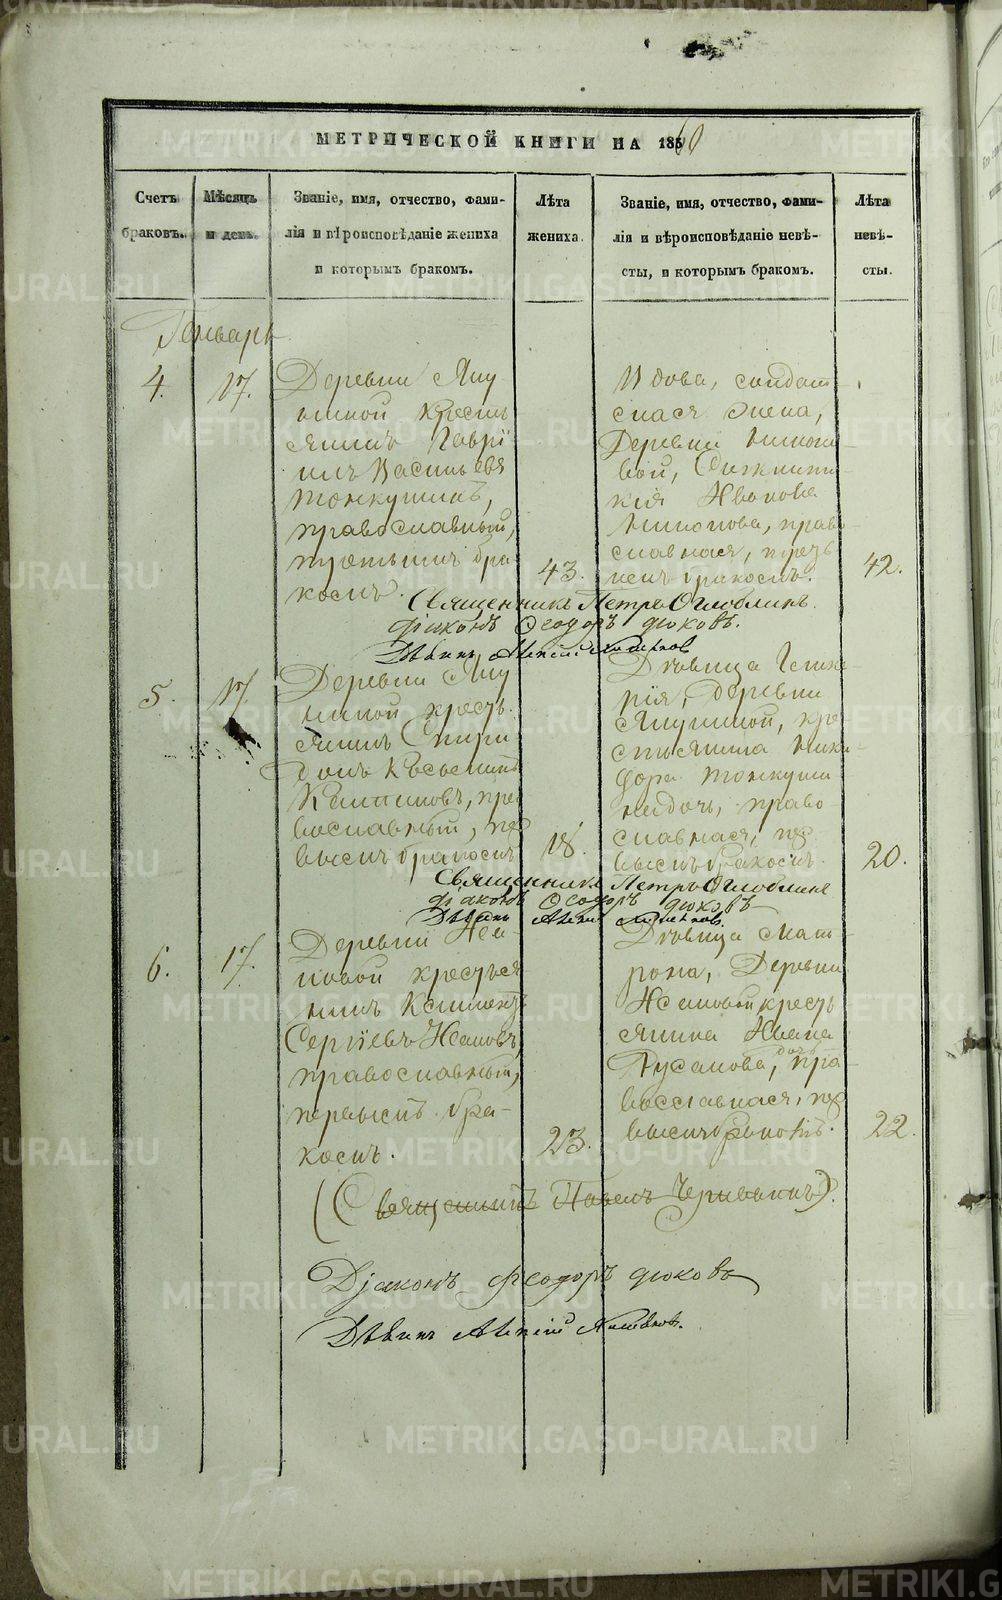 МЕТРИЧЕСКОЙ КНИГИ НА 1860
Счетъ браковъ.
Мѣсяцъ и день.
Званіе, имя, отчество, фами-
лія и вѣроисповѣданіе жениха
и которымъ бракомъ.
Лѣта
жениха.
Званіе, имя, отчество, фами-
лія и вѣроисповѣданіе невѣ-
сты, и которымъ бракомъ.
Лѣта
невѣ-
сты.
Генварь
4.
17.
Деревни Яку
ниной кресть
янинъ Гаврі
илъ Васильевъ
Тонкушинъ,
православный,
третьимъ бра
комъ.
43.
Вдова, солдат-
ская жена,
Деревни
вой,
кія Иванова
право-
славная,
бракомъ.
42.
Священникъ Петръ Оглоблинъ.
Діаконъ Ѳеодоръ Дюковъ.
Дьячекъ Алексій
5.
17.
Деревни Яку
ниной кресть
янинъ Спири
донъ Косьминъ
пра
вославный, пер
вымъ бракомъ
18.
Дѣвица Глике-
рія, деревни
Якуниной, кре
стьянина Ники
фора Тонкуши
на дочь, право-
славная, пер
вымъ бракомъ.
20.
Священникъ Петръ Оглоблинъ
Діаконъ Ѳеодоръ Дюковъ
Дьячекъ Алексій
6.
17.
Деревни Иса-
ковой крестья
нинъ Климентъ
Сергіевъ Исаковъ,
православный,
первымъ бра-
комъ.
23.
Дѣвица Мат-
рона, Деревни
Исаковой кресть
янина Ивана
Русакова, дочь пра-
вославная, пер
вымъ бракомъ.
22.
(Священникъ Павелъ).
Діаконъ Ѳеодоръ Дюковъ
Дьячекъ Алексій
METRIKI.GASO-URAL.RU